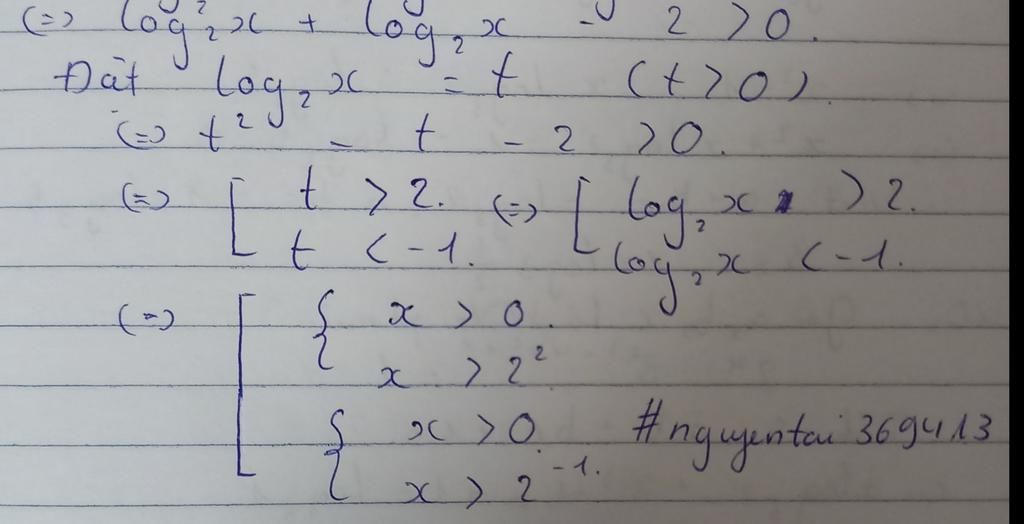 (=) log²₂x + log₂x - 2 > 0.
Đặt log₂x = t (t > 0)
(=) t² - t - 2 > 0.
(=) [ t > 2. (=) [ log₂x > 2.
t < -1. log₂x < -1.
(=) [ { x > 0.
x > 2²
{ x > 0. #nguyentai369413
x > 2⁻¹.